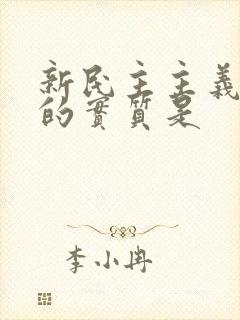 新民主主義
的實質是
李小冉